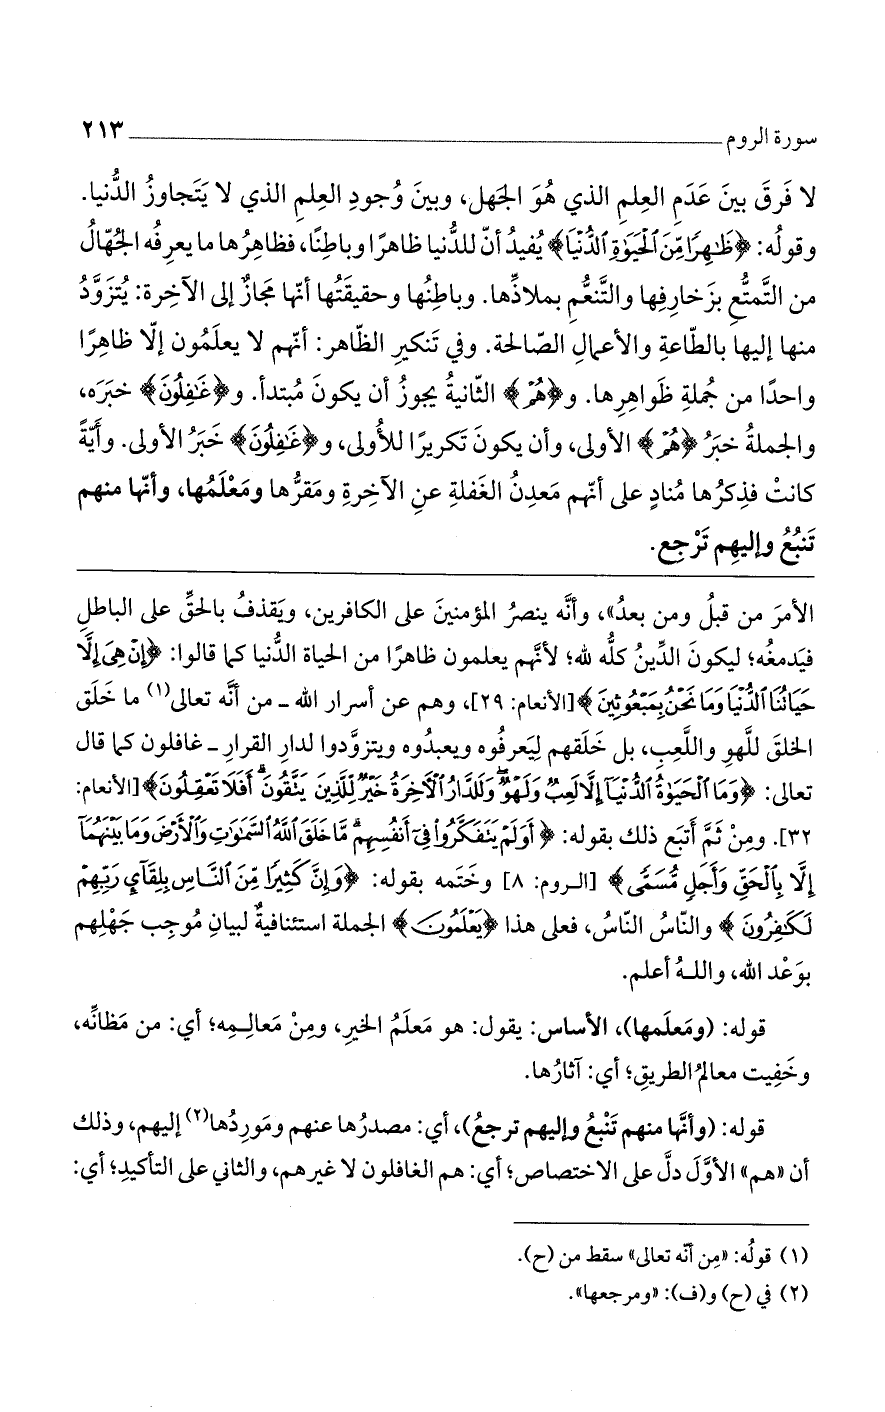 سورة الروم ٢١٣
لا فَرقَ بينَ عَدَمِ العِلمِ الذي هُوَ الجَهل، وبينَ وُجودِ العِلمِ الذي لا يَتَجاوزُ الدُّنيا.
وقولُه: ﴿ظَٰهِرًا مِّنَ ٱلْحَيَوٰةِ ٱلدُّنْيَا﴾ يُفيدُ أنّ للدُّنيا ظاهرًا وباطِنًا، فظاهِرُها ما يعرِفُه الجُهّالُ
من التَّمتُّعِ بزَخارِفِها والتَّنعُّمِ بملاذِّها. وباطِنُها وحقيقَتُها أنّها مَجازٌ إلى الآخِرة: يُتزَوَّدُ
منها إليها بالطّاعةِ والأعمالِ الصّالحة. وفي تَنكيرِ الظّاهر: أنّهم لا يعلَمُون إلّا ظاهِرًا
واحدًا من جُملةِ ظَواهِرِها. و﴿هُمْ﴾ الثّانيةُ يجوزُ أن يكونَ مُبتدأ. و﴿غَٰفِلُونَ﴾ خبَرَه،
والجملةُ خبَرُ ﴿هُمْ﴾ الأولى، وأن يكونَ تَكريرًا للأُولى، و﴿غَٰفِلُونَ﴾ خَبَرُ الأولى. وأيّةً
كانتْ فذِكرُها مُنادٍ على أنّهم مَعدِنُ الغَفلةِ عنِ الآخِرةِ ومَقرُّها ومَعْلَمُها، وأنّها منهم
تَنبُعُ وإليهِم تَرْجِع.
الأمرَ من قبلُ ومن بعدُ»، وأنَّه ينصرُ المؤمنينَ على الكافرين، ويَقذفُ بالحقِّ على الباطلِ
فيَدمغُه؛ ليكونَ الدِّينُ كلُّه لله؛ لأنَّهم يعلمون ظاهرًا من الحياة الدُّنيا كما قالوا: ﴿إِنْ هِىَ إِلَّا
حَيَاتُنَا ٱلدُّنْيَا وَمَا نَحْنُ بِمَبْعُوثِينَ﴾ [الأنعام: ٢٩]، وهم عن أسرار الله - من أنَّه تعالى(١) ما خَلَق
الخلقَ للَّهوِ واللَّعِب، بل خَلَقهم لِيَعرفُوه ويعبدُوه ويتزوَّدوا لدارِ القرارِ - غافلون كما قال
تعالى: ﴿وَمَا ٱلْحَيَوٰةُ ٱلدُّنْيَآ إِلَّا لَعِبٌ وَلَهْوٌ ۖ وَلَلدَّارُ ٱلْءَاخِرَةُ خَيْرٌ لِّلَّذِينَ يَتَّقُونَ ۗ أَفَلَا تَعْقِلُونَ﴾ [الأنعام:
٣٢]. ومِنْ ثَمَّ أتبَع ذلك بقوله: ﴿أَوَلَمْ يَتَفَكَّرُوا۟ فِىٓ أَنفُسِهِم ۗ مَّا خَلَقَ ٱللَّهُ ٱلسَّمَٰوَٰتِ وَٱلْأَرْضَ وَمَا بَيْنَهُمَآ
إِلَّا بِٱلْحَقِّ وَأَجَلٍ مُّسَمًّى﴾ [الروم: ٨] وخَتَمه بقوله: ﴿وَإِنَّ كَثِيرًا مِّنَ ٱلنَّاسِ بِلِقَآئِ رَبِّهِمْ
لَكَٰفِرُونَ﴾ والنّاسُ النّاسُ، فعلى هذا ﴿يَعْلَمُونَ﴾ الجملة استئنافيةٌ لبيانِ مُوجِب جَهْلِهم
بوَعْد الله، واللهُ أعلم.
قوله: (ومَعلَمها)، الأساس: يقول: هو مَعلَمُ الخيرِ، ومِنْ مَعالِمِه؛ أي: من مَظانِّه،
وخَفِيت معالمُ الطريقِ؛ أي: آثارُها.
قوله: (وأنَّها منهم تَنْبعُ وإليهم ترجعُ)، أي: مصدرُها عنهم ومَورِدُها(٢) إليهم، وذلك
أن «هم» الأوَّلَ دلَّ على الاختصاص؛ أي: هم الغافلون لا غيرهم، والثاني على التأكيدِ؛ أي:
(١) قولُه: «مِن أنّه تعالى» سقط من (ح).
(٢) في (ح) و(ف): «ومرجعها».